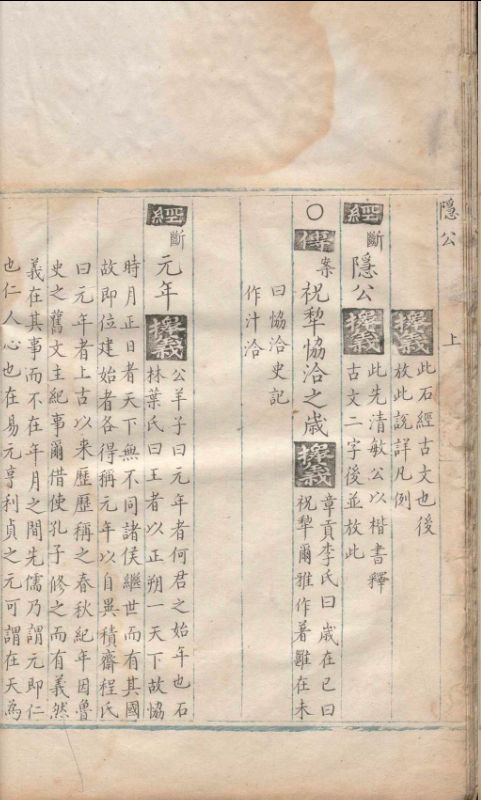 隱公　上
義　此石經古文也後
放此說詳凡例
經　斷　隱公　義　此先清敏公以楷書釋
古文二字後並放此
○　傳　案　祝犂協洽之歲　義　章貢李氏曰歲在己曰
祝犂爾雅作著雝在未
曰協洽史記
作汁洽
經　斷　元年　義　公羊子曰元年者何君之始年也石
林葉氏曰王者以正朔一天下故協
時月正日者天下無不同諸侯繼世而有其國
故即位建始者各得稱元年以自異積齋程氏
曰元年者上古以来歷歷稱之春秋紀年因魯
史之舊文主紀事爾借使孔子修之而有義然
義在其事而不在年月之間先儒乃謂元即仁
也仁人心也在易元亨利貞之元可謂在天為